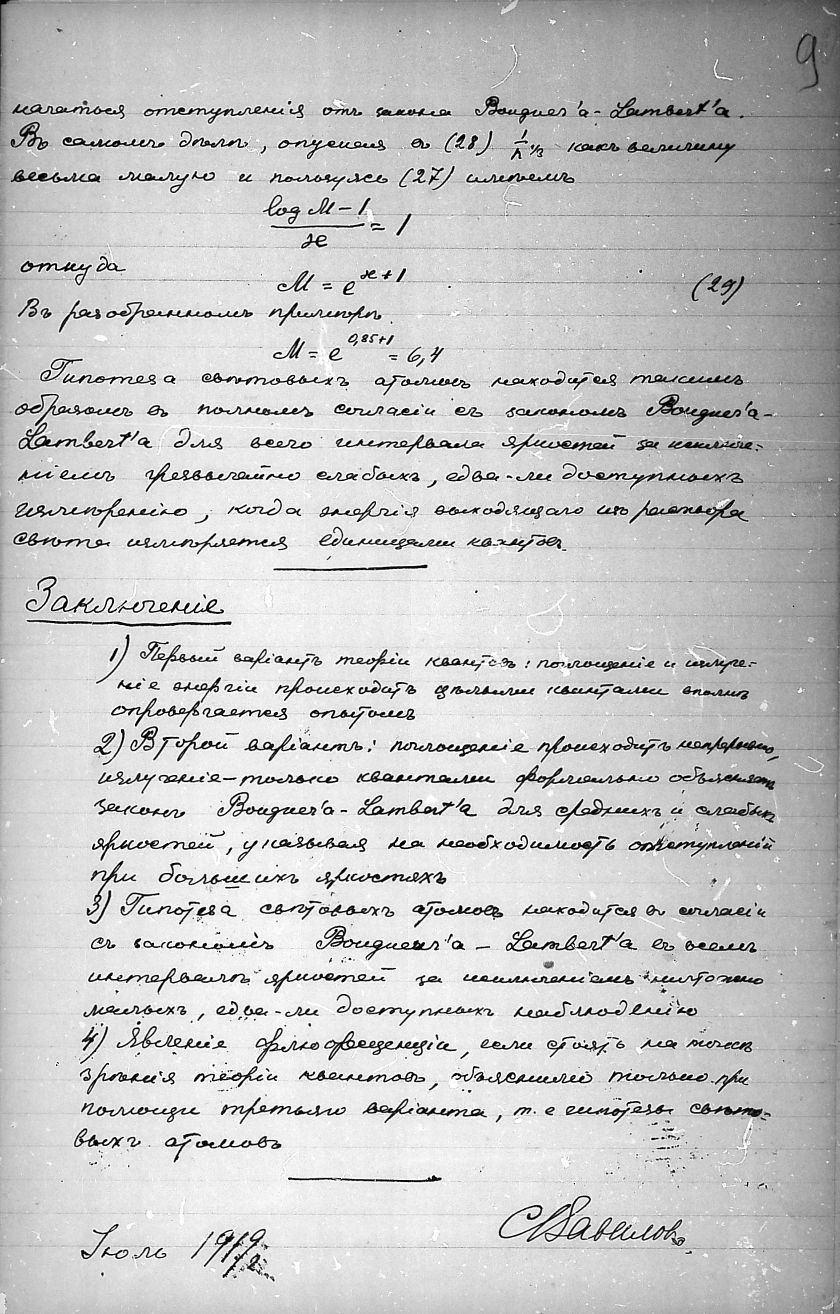 9
начаться отступленія отъ закона Bouguer'а - Lambert'а.
Въ самомъ дѣлѣ, опуская въ (28) 1/h ⅓ какъ величину
весьма малую и пользуясь (27) имѣемъ
(log M - 1)/ϰ = 1
откуда
M = e^{ϰ+1} (29)
Въ разобранномъ примѣрѣ.
M = e^{0,85+1} = 6,4
Гипотеза свѣтовыхъ атомовъ находится такимъ
образомъ въ полномъ согласіи съ закономъ Bouguer'а -
Lambert'а для всего интервала яркостей за исключе-
ніемъ чрезвычайно слабыхъ, едва-ли доступныхъ
измѣренію, когда энергія выходящаго изъ раствора
свѣта измѣряется единицами квантовъ.
Заключеніе
1) Первый варіантъ теоріи квантовъ: поглощеніе и излуче-
ніе энергіи происходитъ цѣлыми квантами вполнѣ
опровергается опытомъ
2) Второй варіантъ: поглощеніе происходитъ непрерывно,
излученіе - только квантами формально объясняетъ
законъ Bouguer'а - Lambert'а для среднихъ и слабыхъ
яркостей, указывая на необходимость отступленій
при большихъ яркостяхъ
3) Гипотеза свѣтовыхъ атомовъ находится въ согласіи
съ закономъ Bouguer'а - Lambert'а въ всемъ
интервалѣ яркостей за исключеніемъ ничтожно
малыхъ, едва-ли доступныхъ наблюденію
4) Явленіе флюоресценціи, если стоять на точкѣ
зрѣнія теоріи квантовъ, объяснимо только при
помощи третьяго варіанта, т. е гипотезы свѣто-
выхъ атомовъ
Іюль 1919
СВавиловъ.